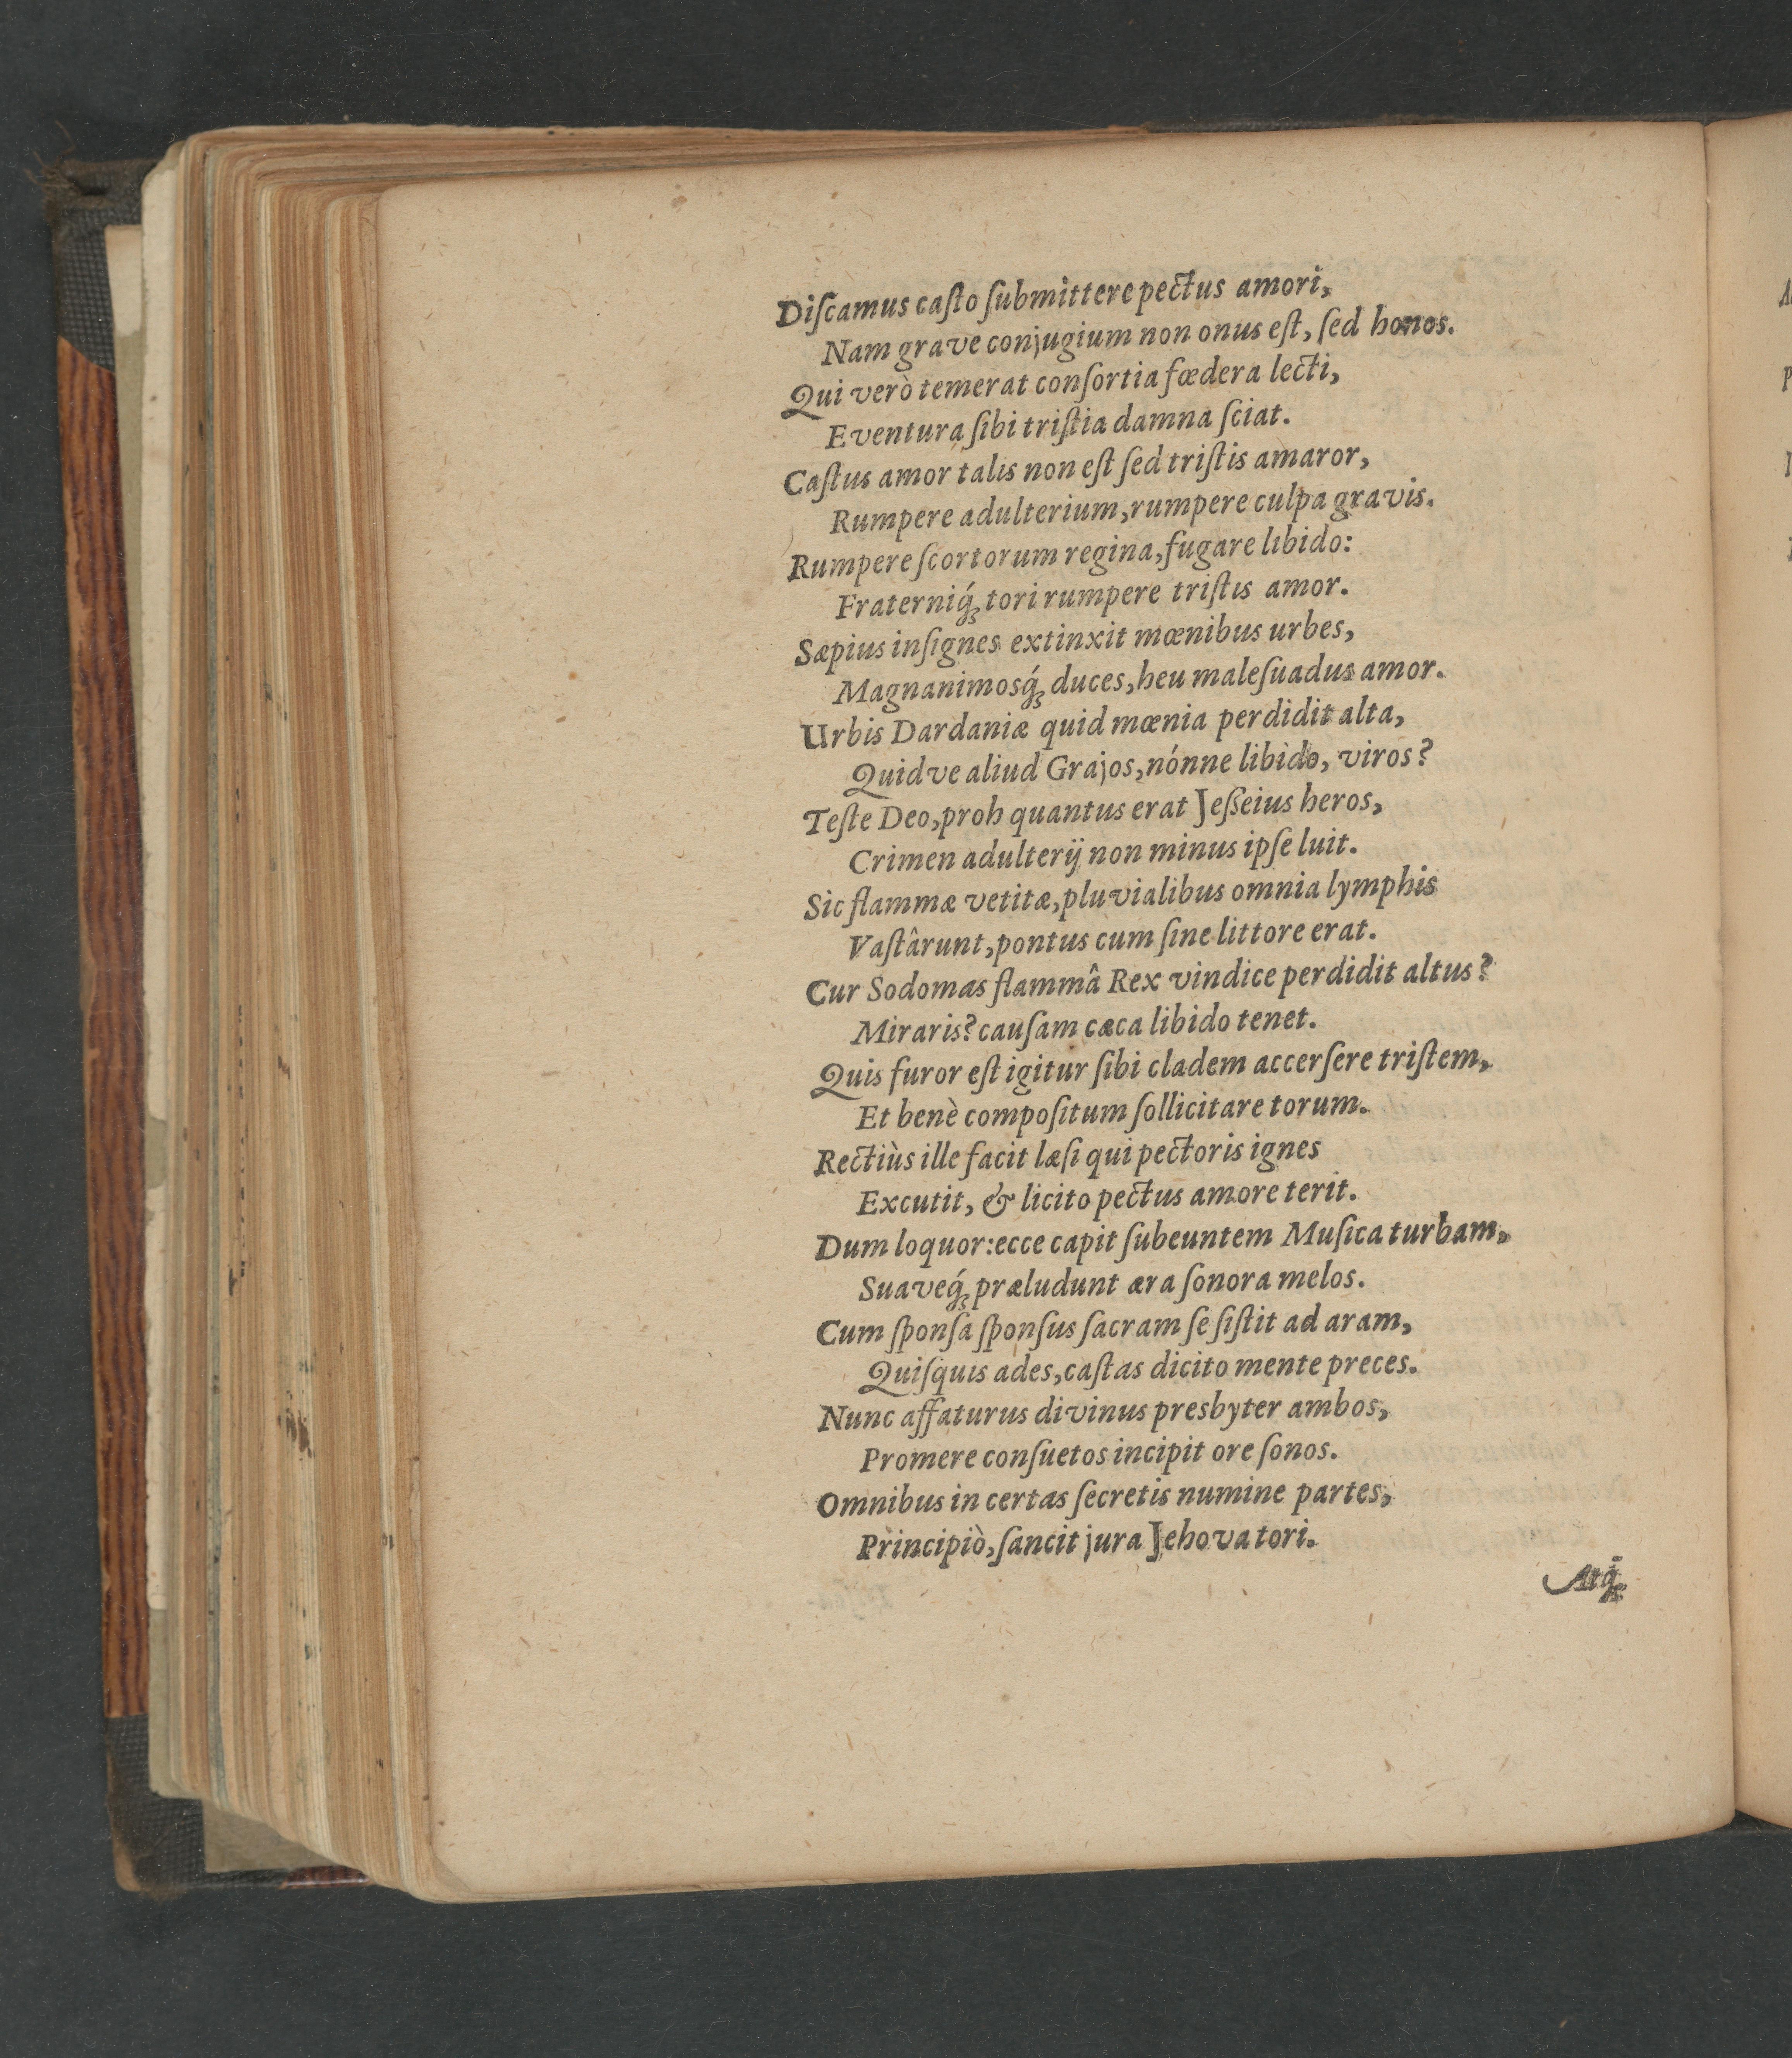 Diſcamus caſto ſubmittere pectus amori,
Nam grave conjugium non onus eſt, ſed honos.
Qui verò temerat conſortia fœdera lecti,
Eventura ſibi triſtia damna ſciat.
Caſtus amor talis non eſt ſed triſtis amaror,
Rumpere adulterium, rumpere culpa gravis.
Rumpere ſcortorum regina, fugare libido:
Fraterniq́; tori rumpere triſtis amor.
Sæpius inſignes extinxit mœnibus urbes,
Magnanimosq́; duces, heu maleſuadus amor.
Urbis Dardaniæ quid mœnia perdidit alta,
Quidve aliud Grajos, nónne libido, viros?
Teſte Deo, proh quantus erat Jeſſeius heros,
Crimen adulterij non minus ipſe luit.
Sic flammæ vetitæ, pluvialibus omnia lymphis
Vaſtârunt, pontus cum ſine littore erat.
Cur Sodomas flammâ Rex vindice perdidit altus?
Miraris? cauſam cæca libido tenet.
Quis furor eſt igitur ſibi cladem accerſere triſtem,
Et benè compoſitum ſollicitare torum.
Rectiùs ille facit læſi qui pectoris ignes
Excutit, & licito pectus amore terit.
Dum loquor: ecce capit ſubeuntem Muſica turbam,
Suaveq́; præludunt æra ſonora melos.
Cum ſponſâ ſponſus ſacram ſe ſiſtit ad aram,
Quiſquis ades, caſtas dicito mente preces.
Nunc affaturus divinus presbyter ambos,
Promere conſuetos incipit ore ſonos.
Omnibus in certas ſecretis numine partes,
Principiò, ſancit jura Jehova tori.
Atq́;